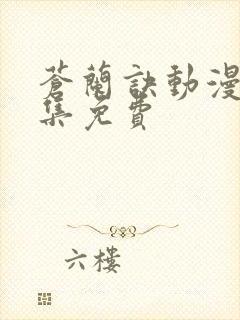 蒼蘭訣動漫
集免費
六樓